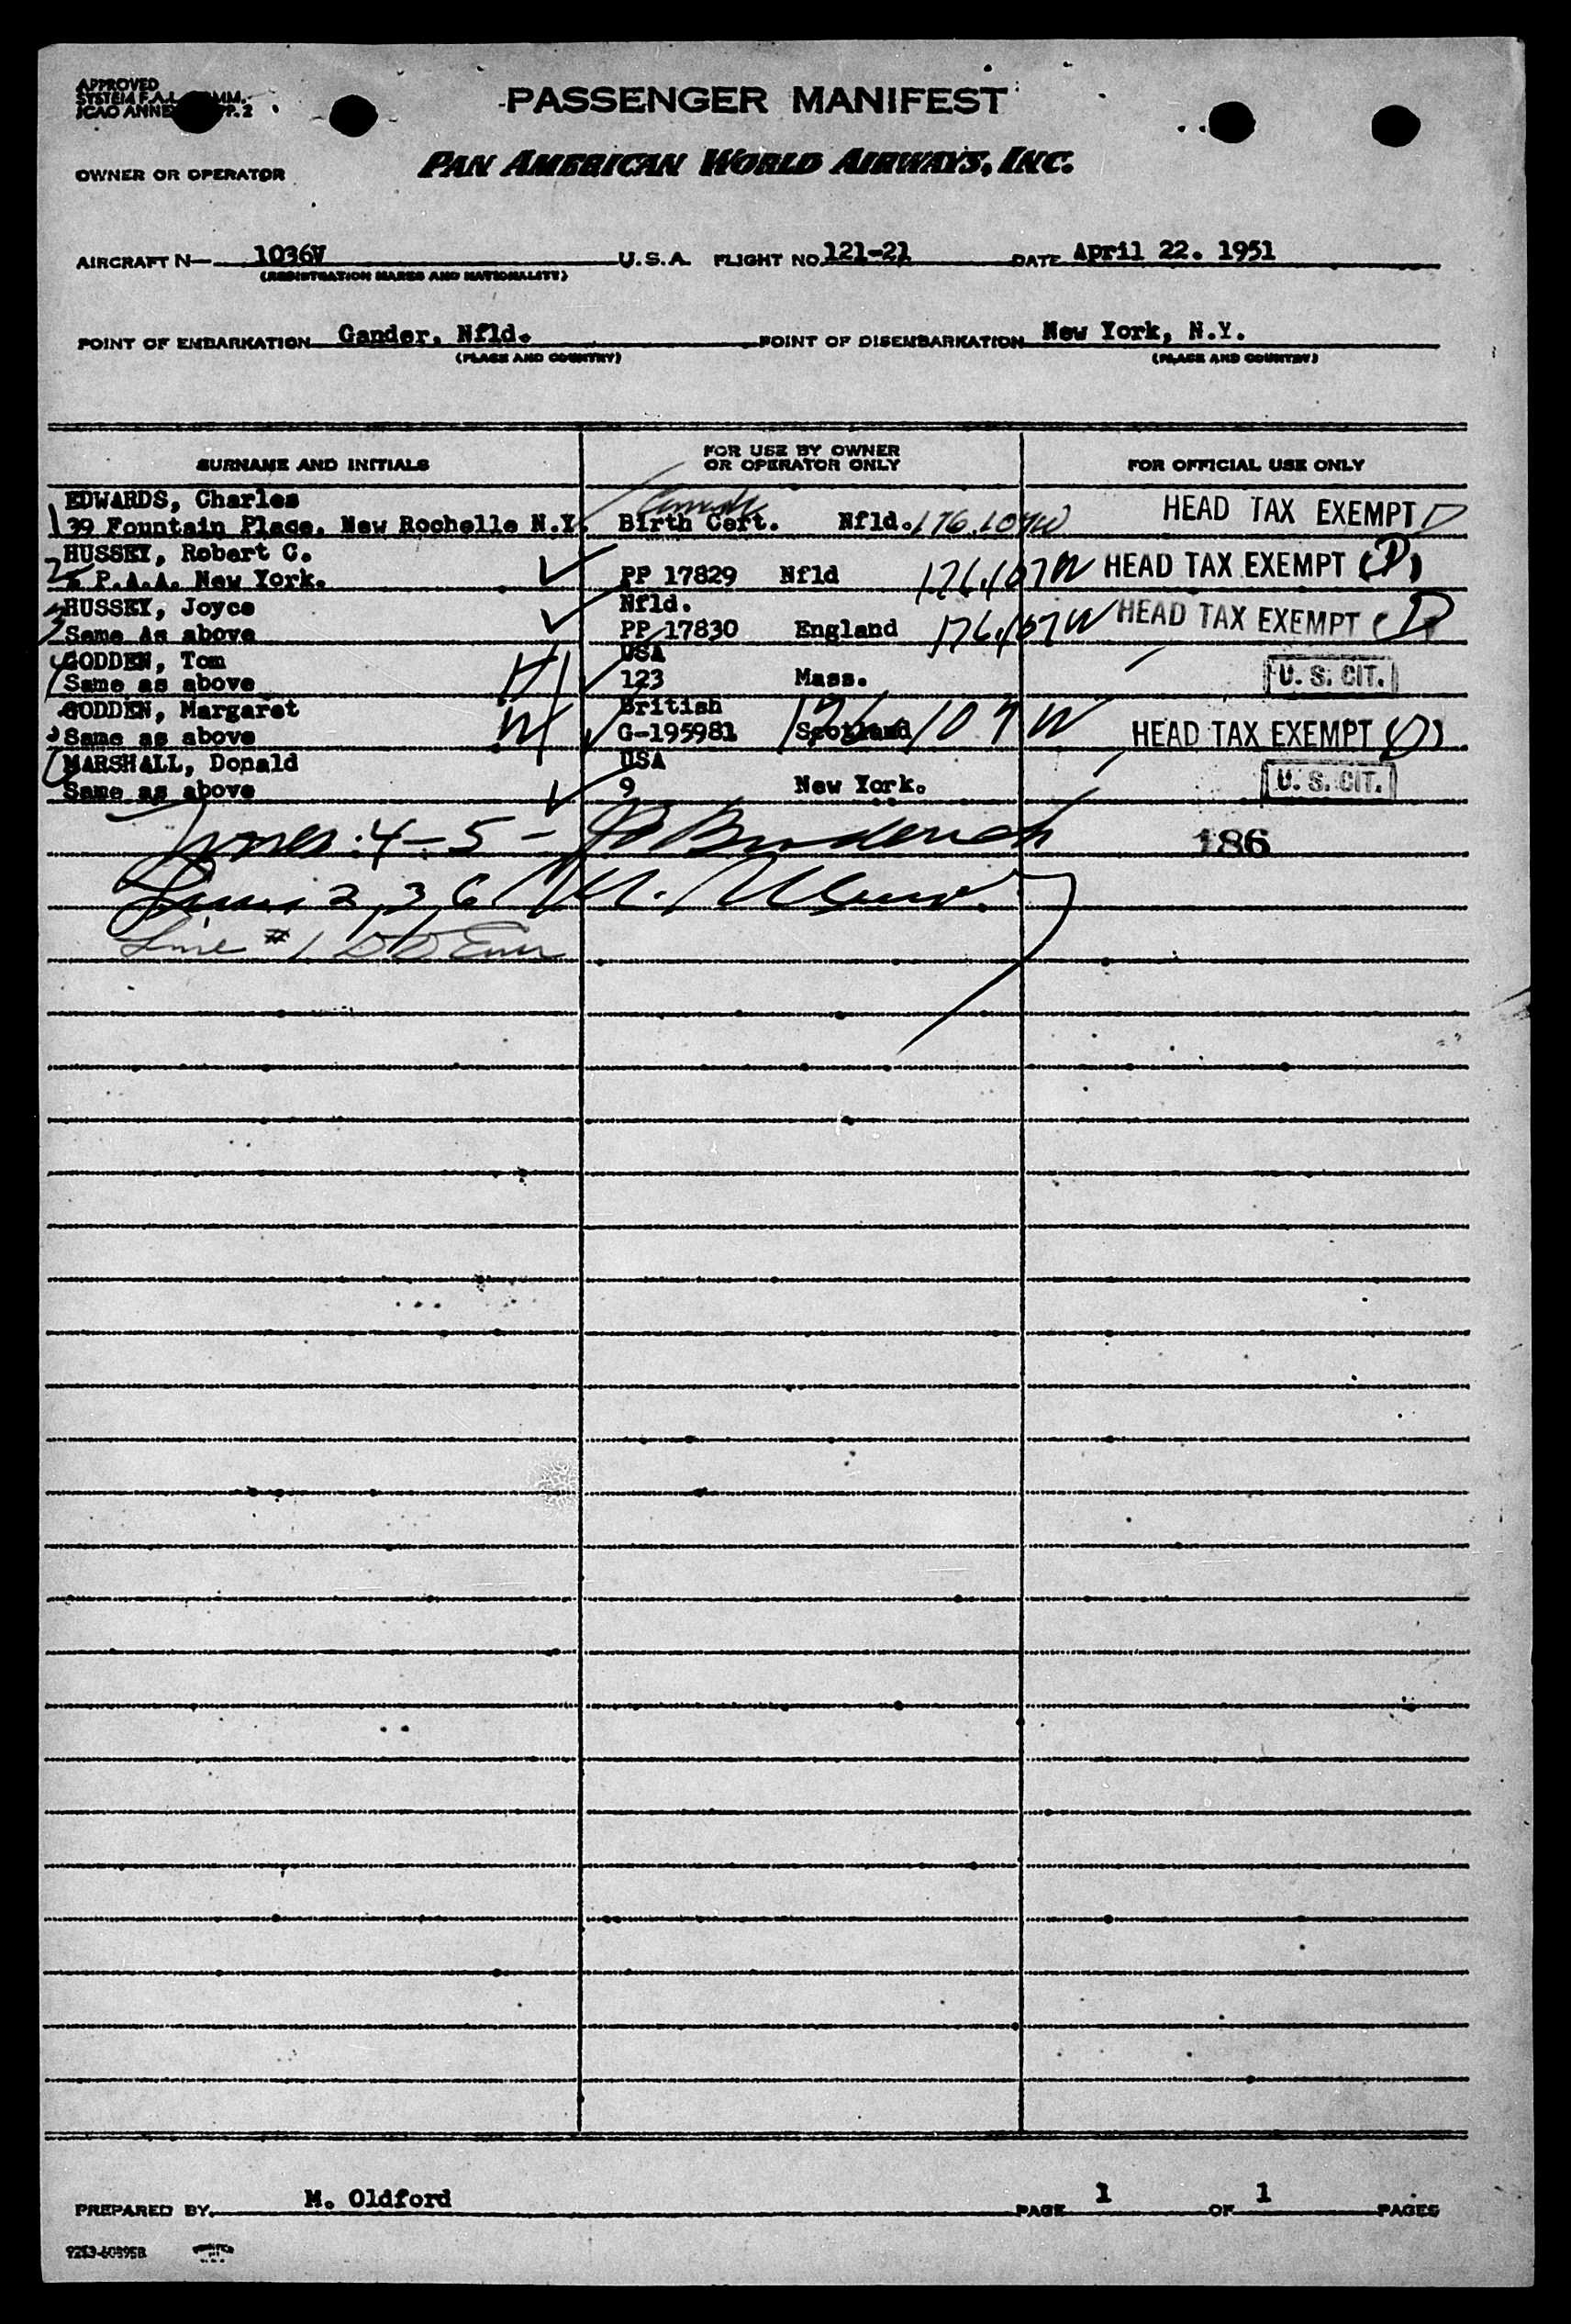 APPROVED
SYSTEM F.A.L. COMM.
ICAO ANNEX P. 2
PASSENGER MANIFEST
OWNER OR OPERATOR PAN AMERICAN WORLD AIRWAYS, INC.
AIRCRAFT N— 1036V U.S.A. FLIGHT NO. 121-21 DATE April 22. 1951
(REGISTRATION MARKS AND NATIONALITY)
POINT OF EMBARKATION Gander, Nfld. POINT OF DISEMBARKATION New York, N.Y.
(PLACE AND COUNTRY) (PLACE AND COUNTRY)
SURNAME AND INITIALS FOR USE BY OWNER OR OPERATOR ONLY FOR OFFICIAL USE ONLY
EDWARDS, Charles
1 39 Fountain Place, New Rochelle N.Y. Birth Cert. Nfld. 176.107W HEAD TAX EXEMPT D
HUSSEY, Robert C.
2 P.A.A. New York. PP 17829 Nfld 176.107W HEAD TAX EXEMPT (D)
HUSSEY, Joyce Nfld.
3 Same As above PP 17830 England 176.107W HEAD TAX EXEMPT (D)
GODDEN, Tom USA
Same as above 123 Mass. U. S. CIT.
GODDEN, Margaret British
Same as above G-195981 Scotland 176.107W HEAD TAX EXEMPT (D)
MARSHALL, Donald USA
Same as above 9 New York. U. S. CIT.
Lines 4-5- 186
Lines 2, 3, 6
Line #1
PREPARED BY M. Oldford PAGE 1 OF 1 PAGES